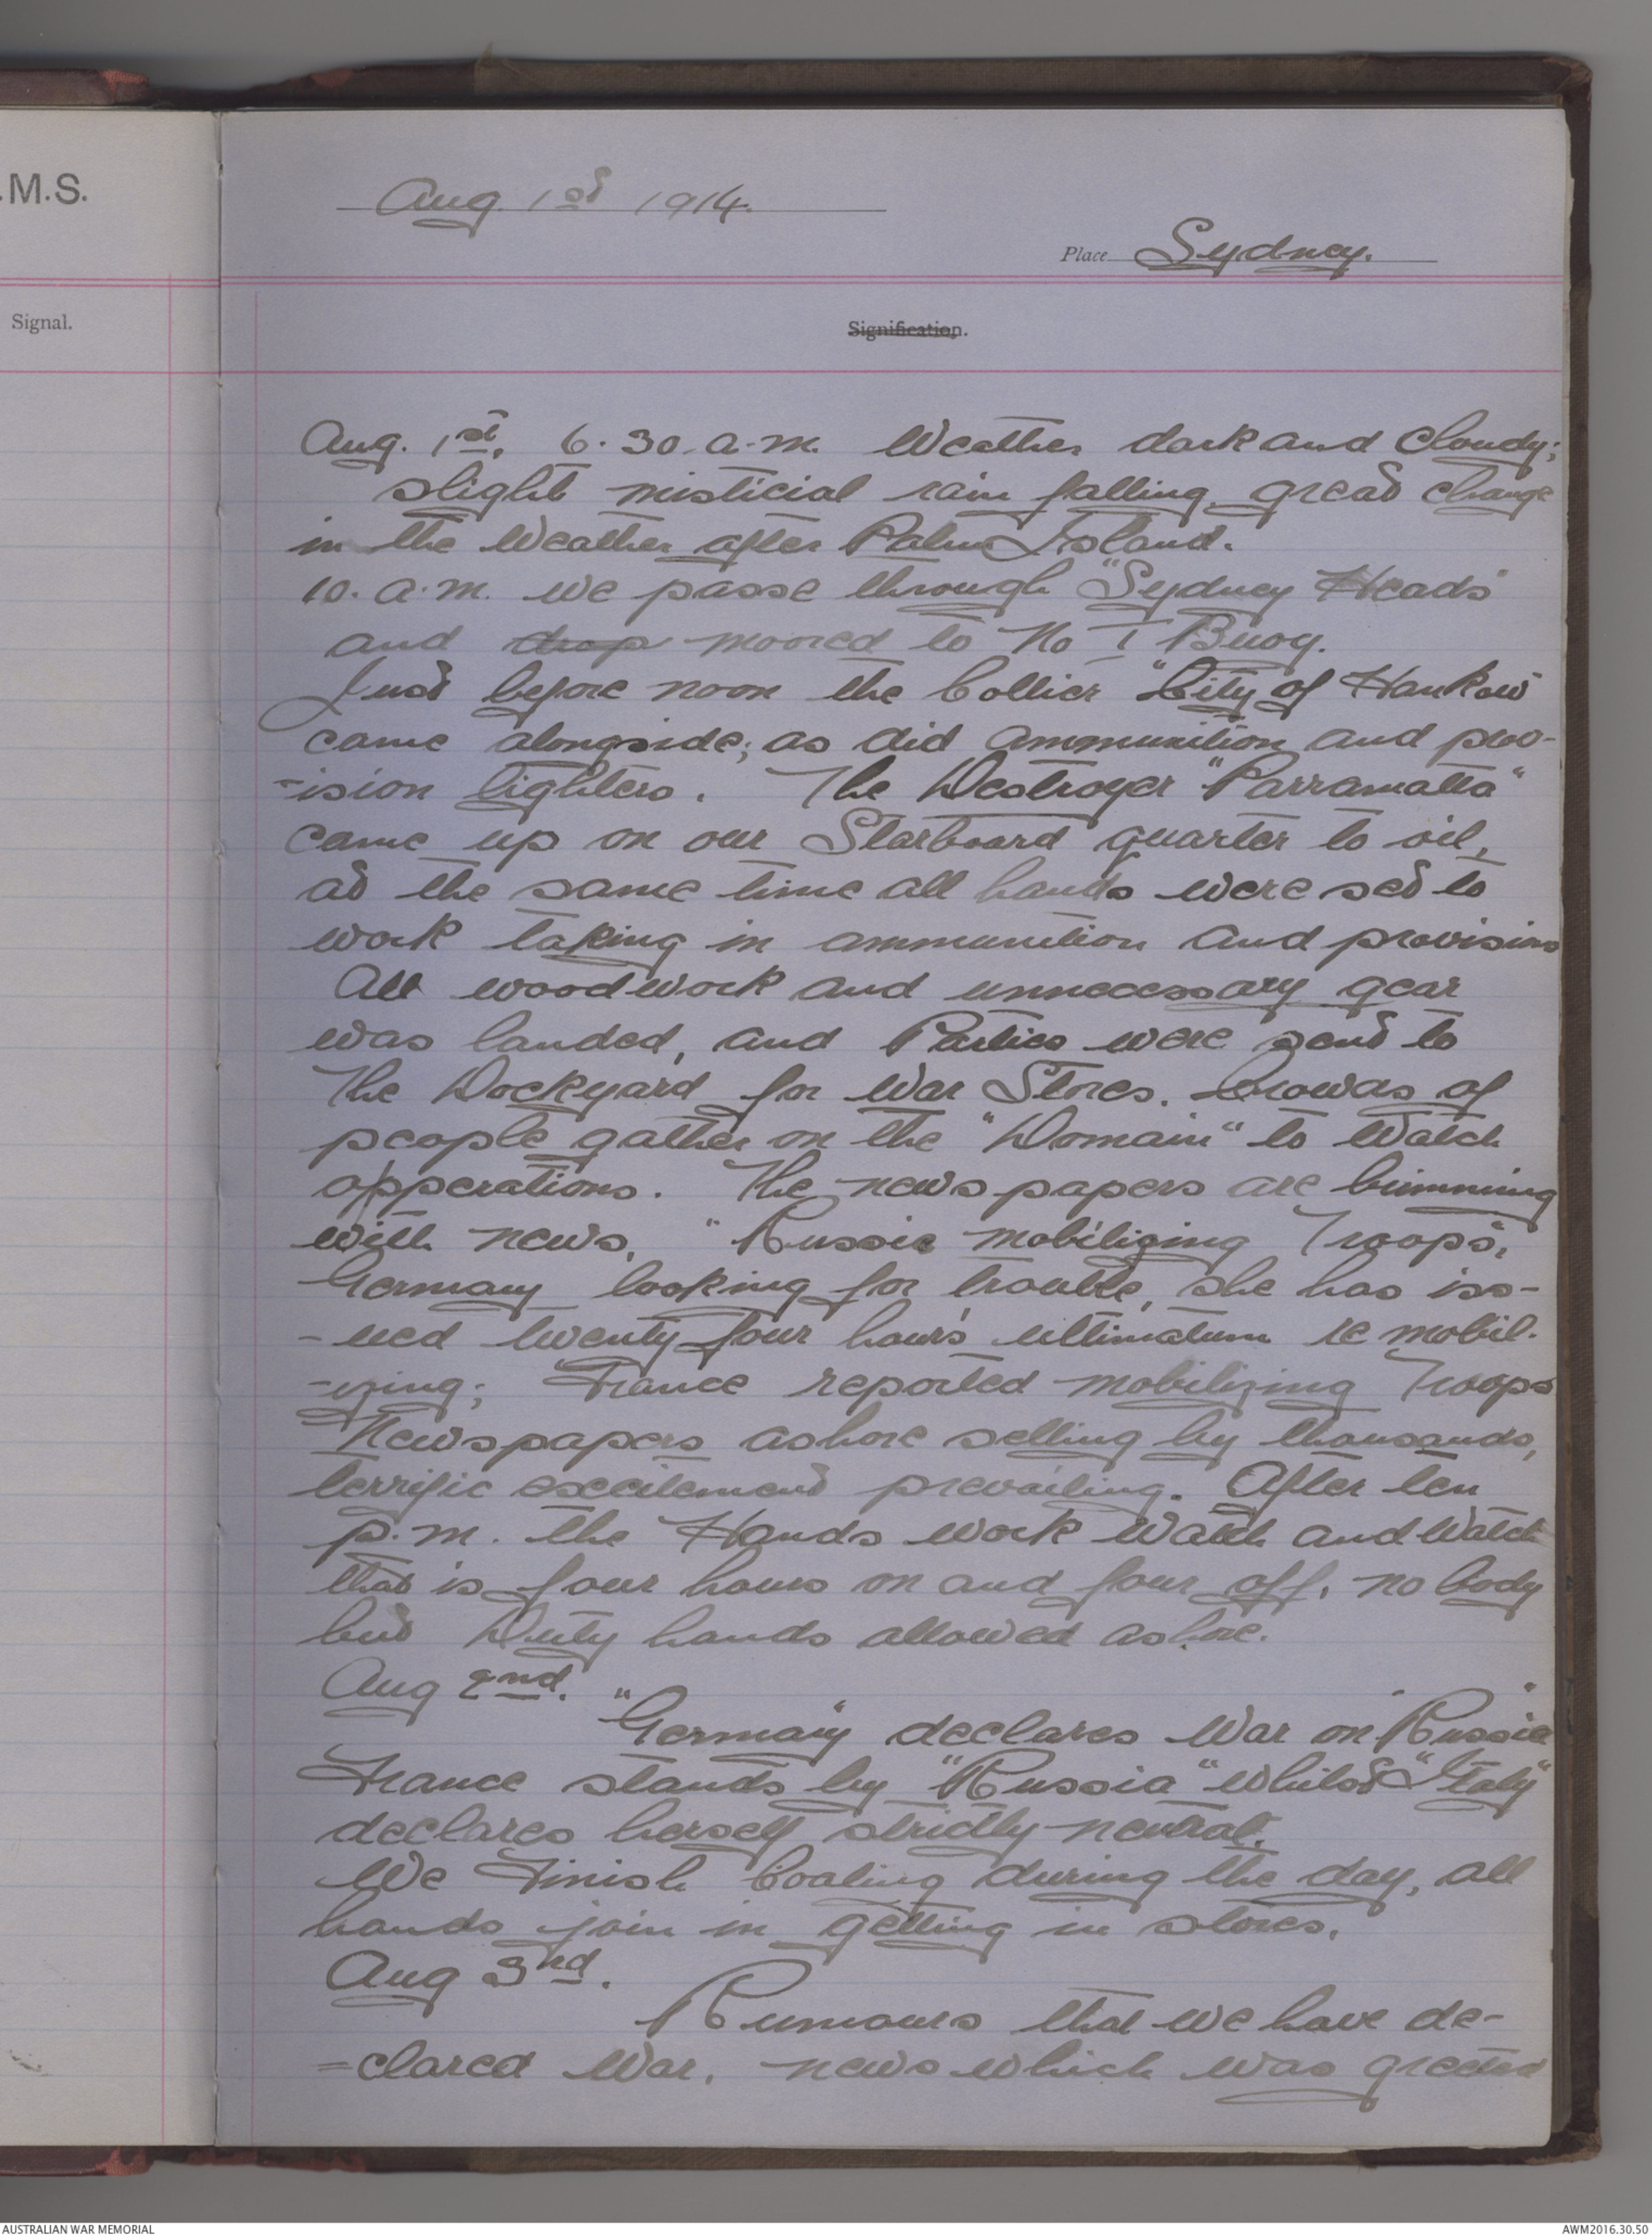 .M.S.
Signal.
Aug. 1st 1914.
Place Sydney.
Signification.
Aug. 1st, 6.30. a.m. Weather dark and Cloudy;
slight misticial rain falling, great change
in the Weather after Palm Island.
10. a.m. we passe through "Sydney Heads"
and drop moored to No 1 Buoy.
Just before noon the Collier "City of Hankow"
came alongside; as did ammunition and prov-
-ision lighters. The Destroyer "Parramatta"
came up on our Starboard quarter to oil,
at the same time all hands were set to
work taking in ammunition and provisions
All woodwork and unnecessary gear
was landed, and Parties were send to
The Dockyard for War Stores. Crowds of
people gather on the "Domain" to Watch
opperations. The news papers are bimming
with news, "Russia mobilizing Troops",
Germany looking for trouble, she has iss-
-ued twenty four hours ultimatum re mobil-
-izing; France reported mobilizing Troops
Newspapers ashore selling by thousands,
terrific excitement prevailing. After ten
p.m. the Hands work Watch and Watch
that is four hours on and four off, no body
but Duty hands allowed ashore.
Aug 2nd.
"Germany" declares War on "Russia"
France stands by "Russia" whilst "Italy"
declares herself strictly neutral.
We Finish Coaling during the day, all
hands join in getting in stores.
Aug 3rd.
Rumours that we have de-
=clared War, news which was greeted
AUSTRALIAN WAR MEMORIAL
AWM2016.30.50